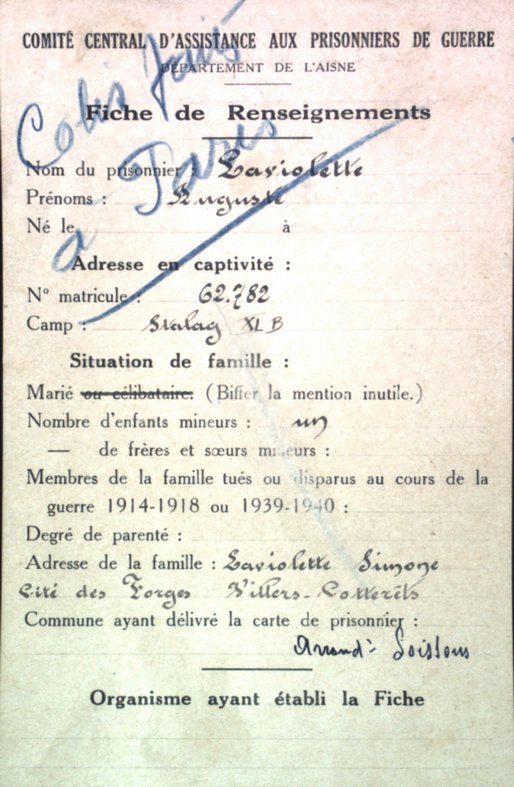 COMITÉ CENTRAL D'ASSISTANCE AUX PRISONNIERS DE GUERRE
DÉPARTEMENT DE L'AISNE
Colis fait
à Paris
Fiche de Renseignements
Nom du prisonnier : Laviolette
Prénoms : Auguste
Né le à
Adresse en captivité :
N° matricule : 62.782
Camp : Stalag XI B
Situation de famille :
Marié ou célibataire. (Biffer la mention inutile.)
Nombre d'enfants mineurs : un
— de frères et sœurs mineurs :
Membres de la famille tués ou disparus au cours de la
guerre 1914-1918 ou 1939-1940 :
Degré de parenté :
Adresse de la famille : Laviolette Simone
Cité des Forges Villers-Cotterêts
Commune ayant délivré la carte de prisonnier :
Arrondt Soissons
Organisme ayant établi la Fiche